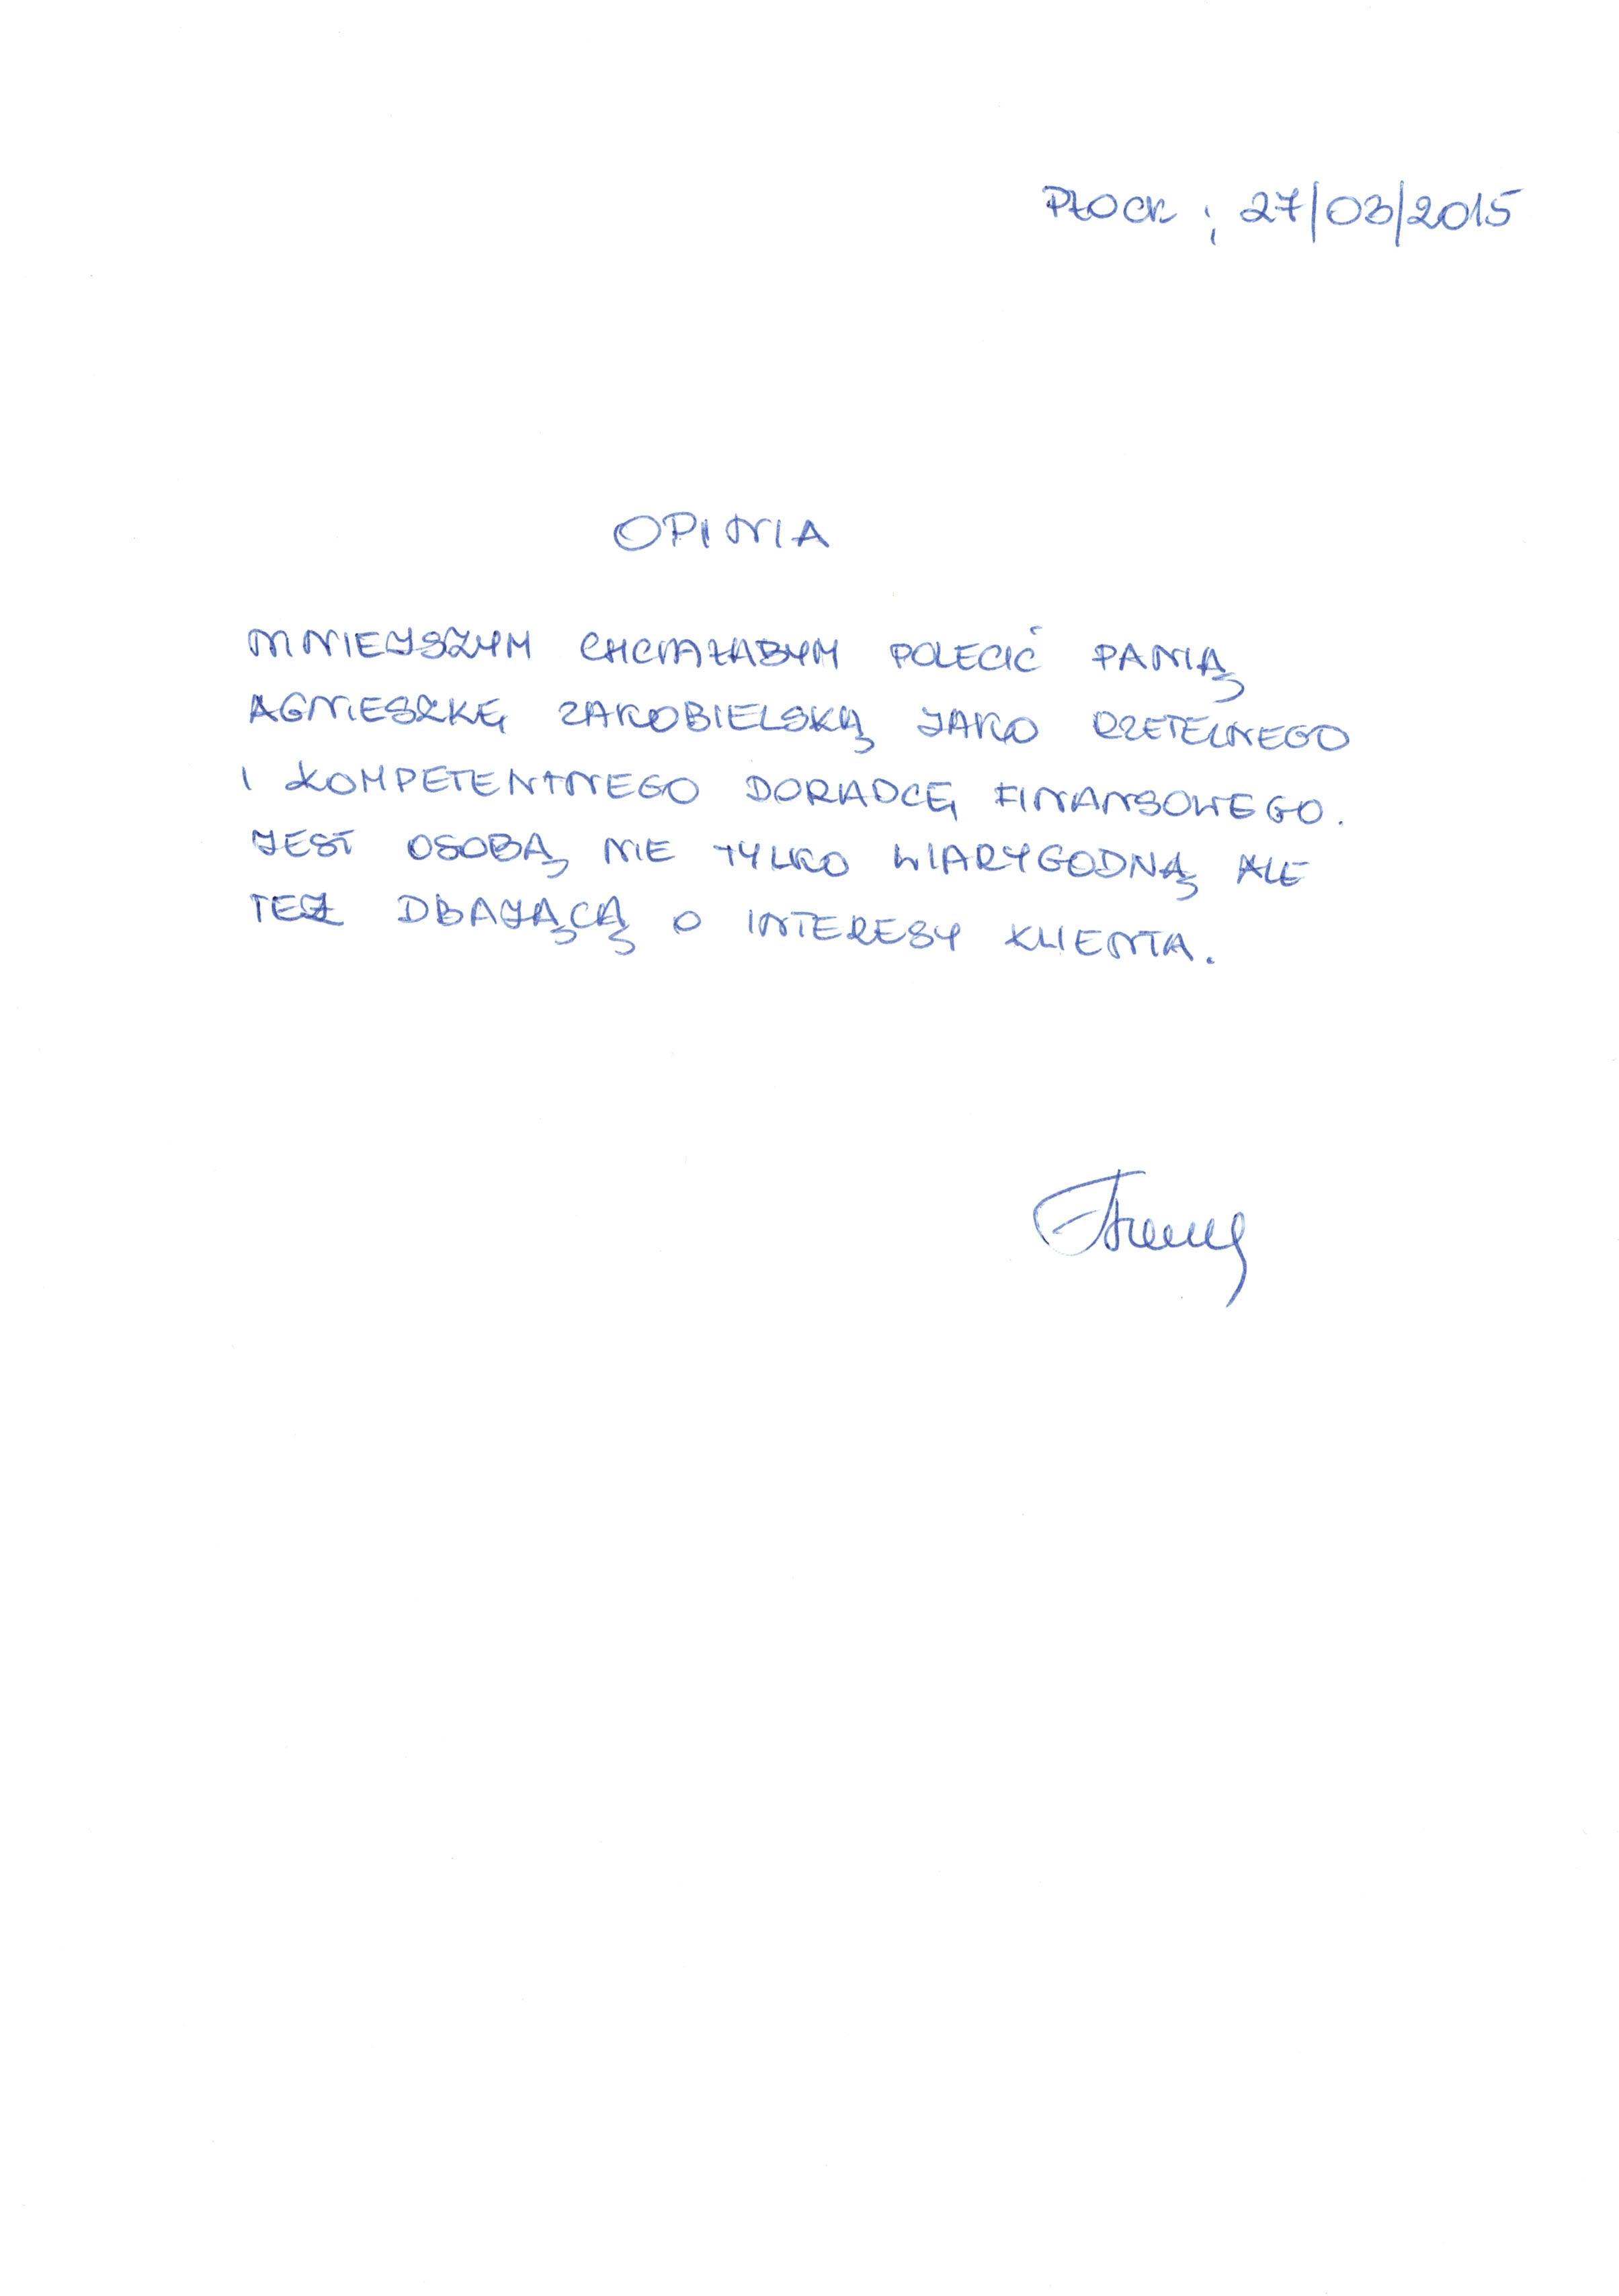 PŁOCK ; 27/03/2015
OPINIA
MNIEJSZYM CHCIAŁABYM POLECIĆ PANIĄ
AGNIESZKĘ ZAKOBIELSKĄ JAKO RZETELNEGO
I KOMPETENTNEGO DORADCĘ FINANSOWEGO.
JEST OSOBĄ NIE TYLKO WIARYGODNĄ ALE
TEŻ DBAJĄCĄ O INTERESY KLIENTA.